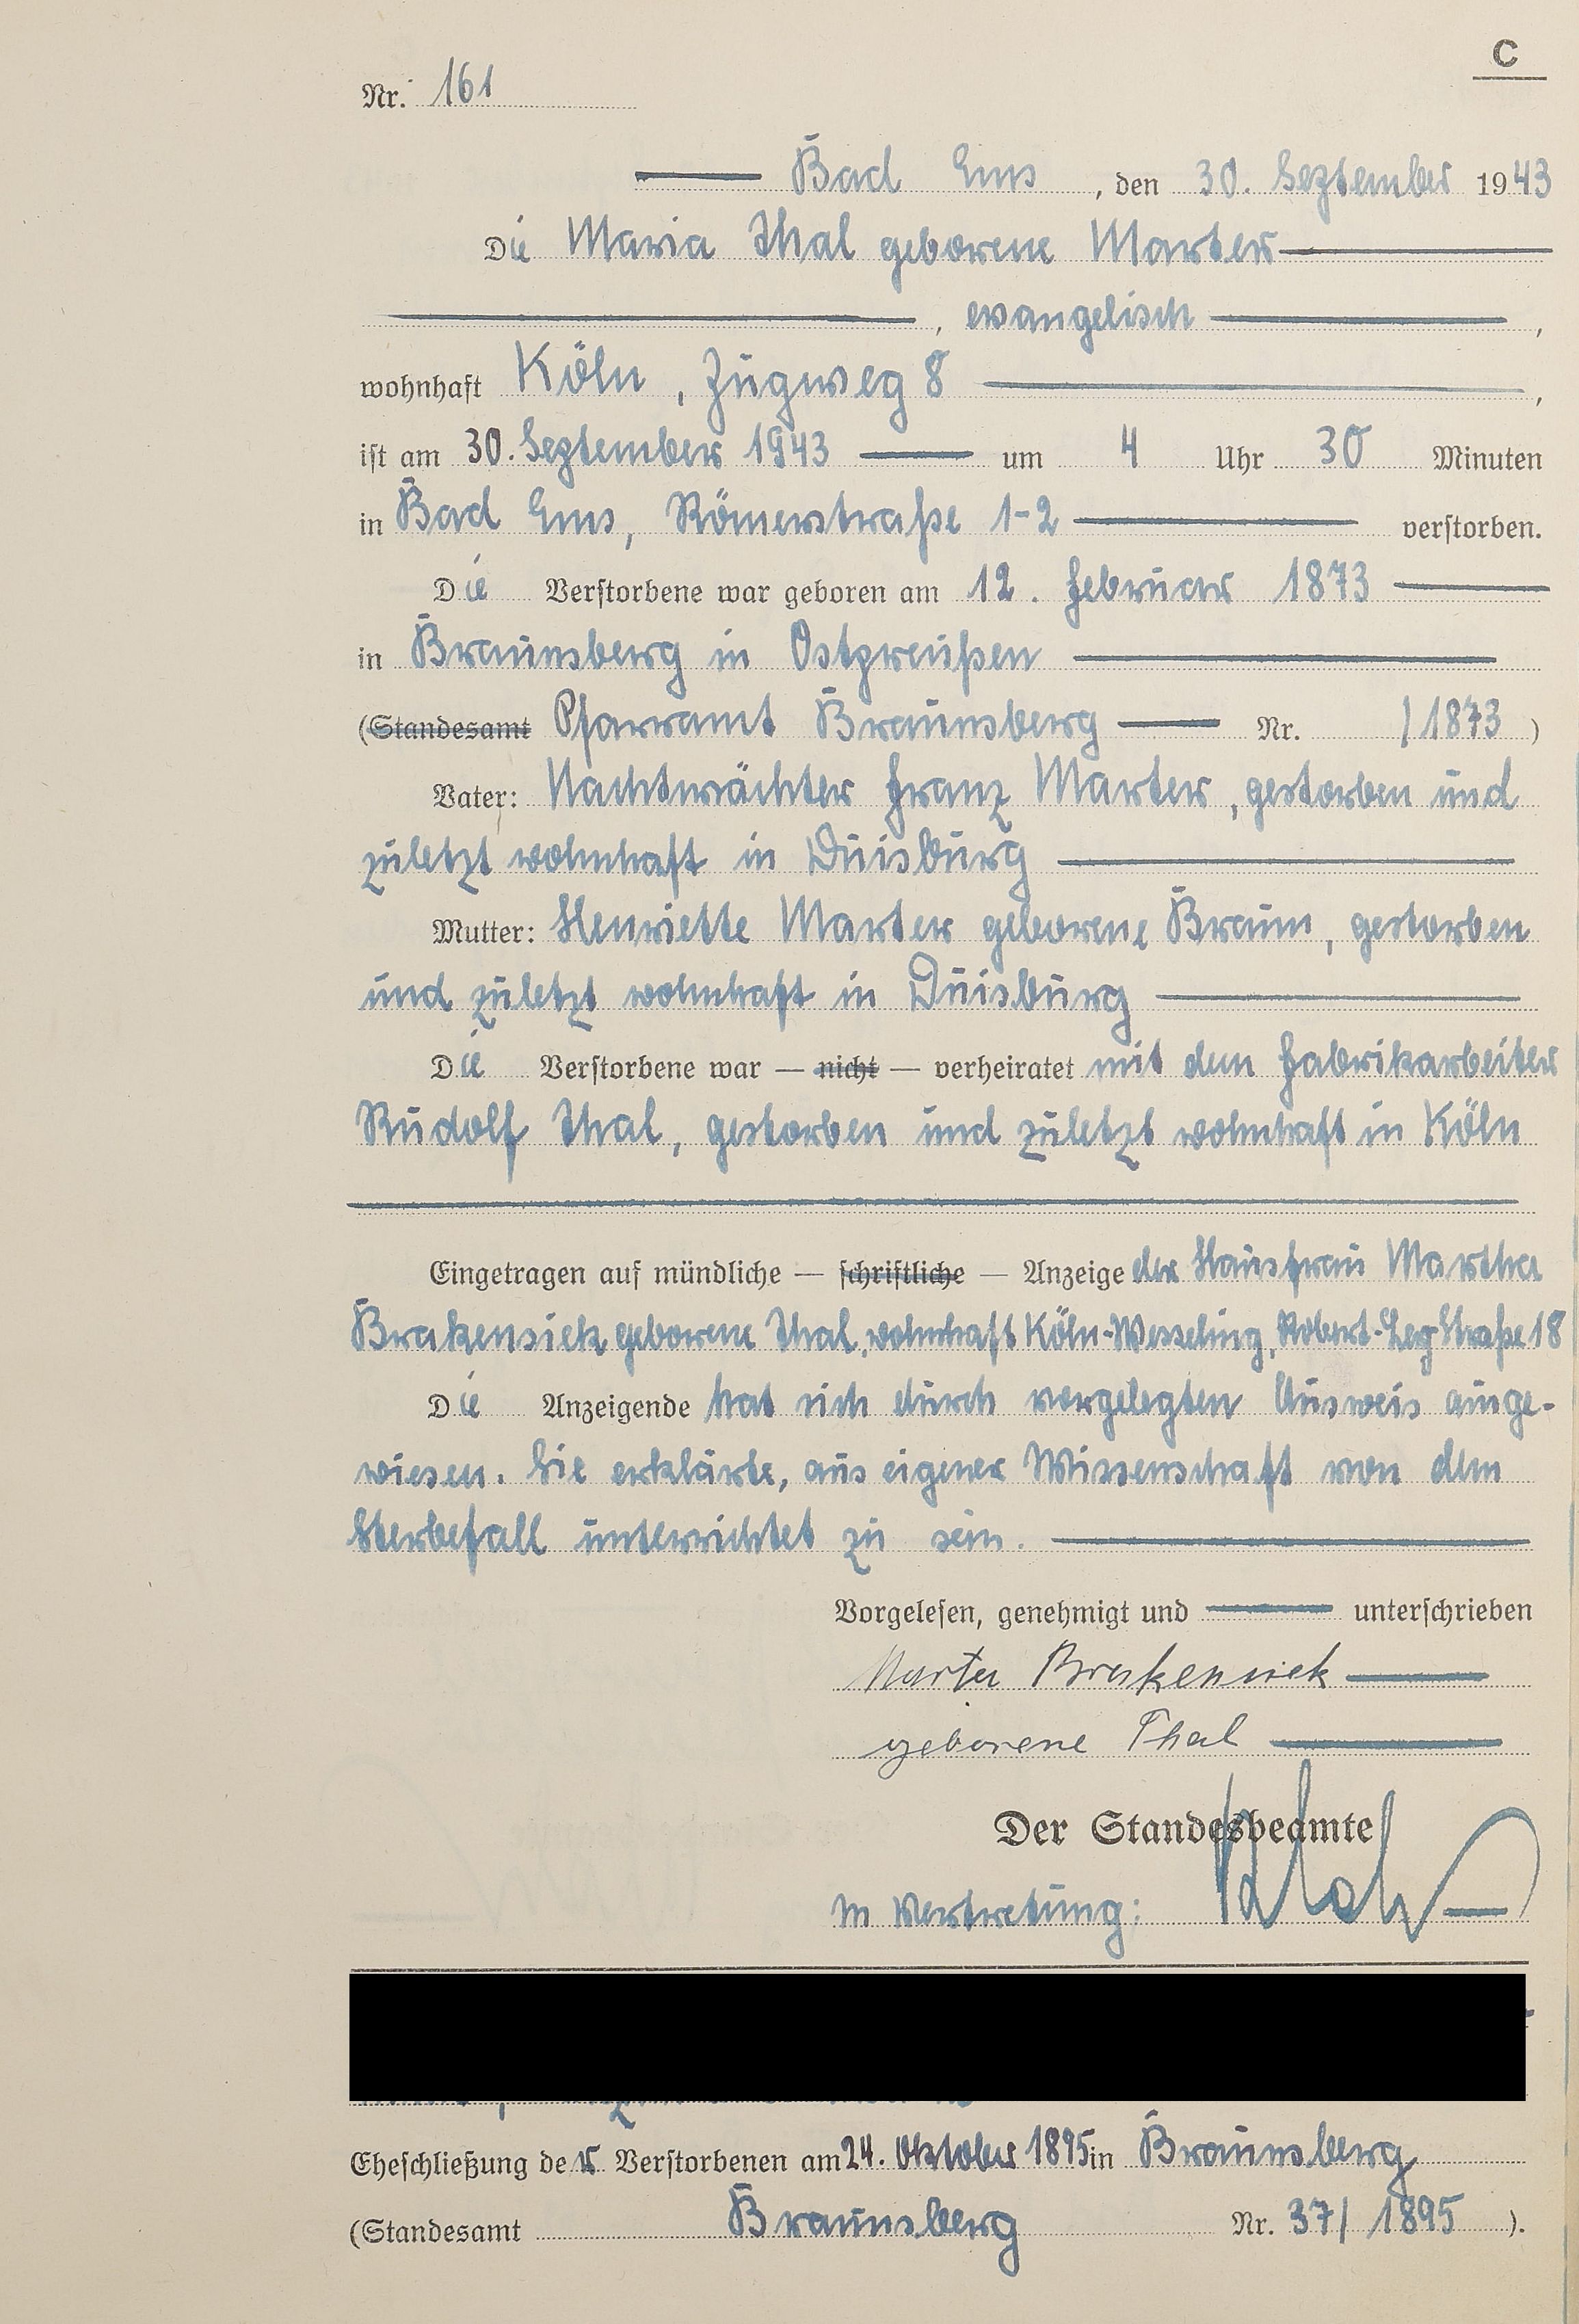 C
Nr. 161
Bad Ems, den 30. September 1943
Die Maria Thal geborene Marter
, evangelisch ,
wohnhaft Köln, Zugweg 8 ,
ist am 30. September 1943 um 4 Uhr 30 Minuten
in Bad Ems, Römerstraße 1-2 verstorben.
Die Verstorbene war geboren am 12. Februar 1873
in Braunsberg in Ostpreußen
(Standesamt Pfarramt Braunsberg Nr. /1873)
Vater: Nachtwächter Franz Marter, gestorben und
zuletzt wohnhaft in Duisburg
Mutter: Henriette Marter geborene Braun, gestorben
und zuletzt wohnhaft in Duisburg
Die Verstorbene war — nicht — verheiratet mit dem Fabrikarbeiter
Rudolf Thal, gestorben und zuletzt wohnhaft in Köln
Eingetragen auf mündliche — schriftliche — Anzeige der Hausfrau Martha
Brakensiek geborene Thal, wohnhaft Köln-Wesseling, Robert-Ley Straße 18
Die Anzeigende hat sich durch vorgelegten Ausweis ausge-
wiesen. Sie erklärte, aus eigener Wissenschaft von dem
Sterbefall unterrichtet zu sein.
Vorgelesen, genehmigt und unterschrieben
Marta Brakensiek
geborene Thal
Der Standesbeamte
In Vertretung:
Eheschließung der Verstorbenen am 24. Oktober 1895 in Braunsberg
(Standesamt Braunsberg Nr. 37/1895).